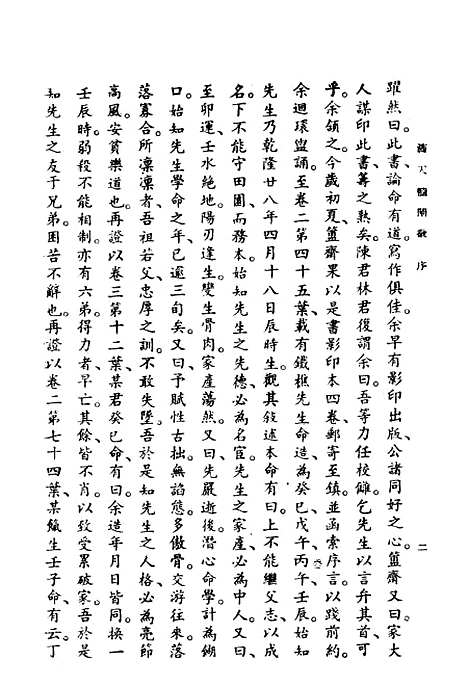 滴天髓闡微 序 二
躍然曰。此書、論命有道。寫作俱佳。余早有影印出版、公諸同好之心。簠齋又曰。家大
人謀印此書、籌之熟矣。陳君林君復謂余曰。吾等力任校讎、乞先生以言弁其首、可
乎。余頷之。今歲初夏、簠齋果以是書影印本四卷、郵寄至鎮、並函索序言。以踐前約。
余迴環盥誦。至卷二第四十五葉、載有鐵樵先生命造、為癸巳、戊午、丙午、壬辰。始知
先生乃乾隆廿八年四月十八日辰時生。觀其敘述本命有曰。上不能繼父志、以成
名。下不能守田園、而務本。始知先生之先德、必為名宦。先生之家產、必為中人。又曰、
至卯運、壬水絕地。陽刃逢生。變生骨肉。家產蕩然。又曰、先嚴逝後。潛心命學、計為餬
口。始知先生學命之年、已逾三旬矣。又曰、予賦性古拙。無諂態。多傲骨。交游往來。落
落寡合。所凜凜者、吾祖若父、忠厚之訓、不敢失墜。吾於是知先生之人格、必為亮節
高風。安貧樂道也。再證以卷三第十二葉、某君癸巳命、有曰。余造年月日皆同。換一
壬辰時。弱殺不能相制。亦有六弟。得力者、早亡。其餘、皆不肖。以致受累破家。吾於是
知先生之友于兄弟。困苦不辭也。再證以卷二第七十四葉、某織生壬子命、有云。丁